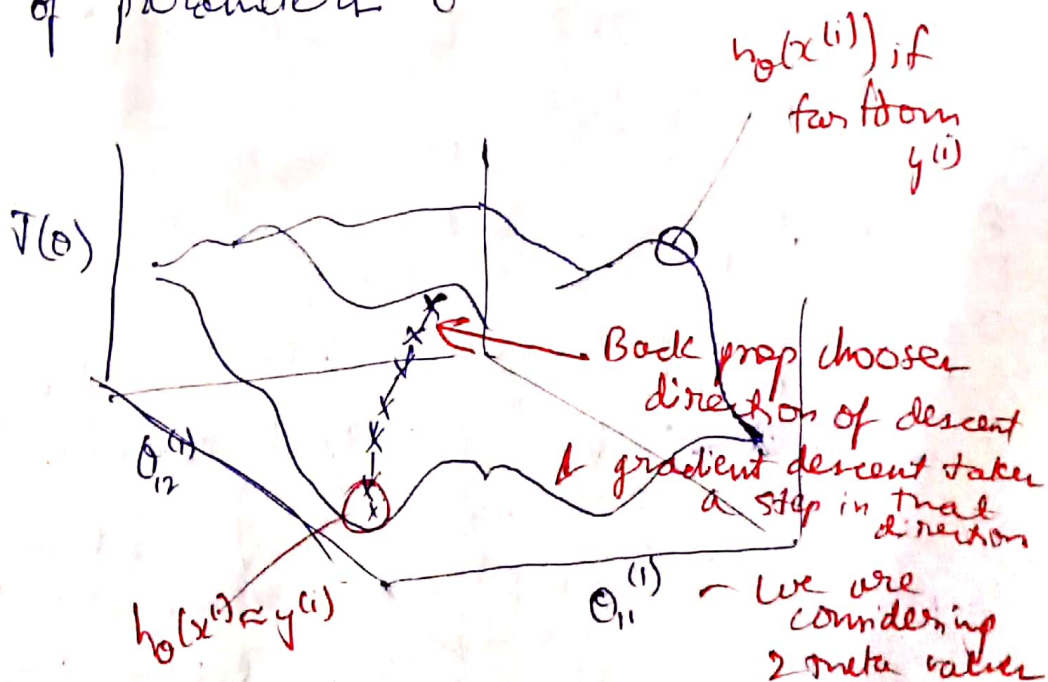 of parameters θ
h_θ(x^(i)) if
far from
y^(i)
J(θ)
Back prop chooses
direction of descent
& gradient descent takes
a step in that
direction
Θ_12^(1)
h_θ(x^(i)) ≈ y^(i)
Θ_11^(1)
- We are
considering
2 theta values